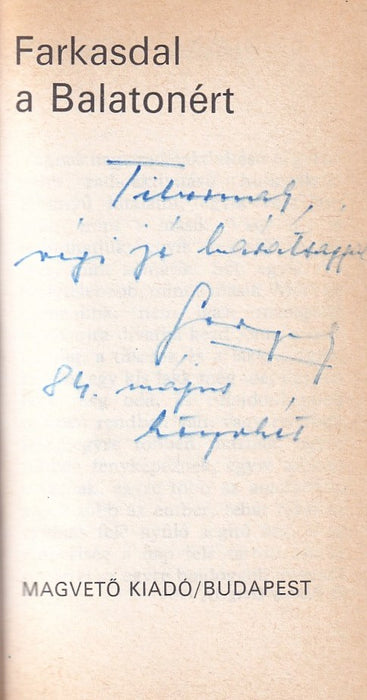 Farkasdal
a Balatonért
Tibornak,
régi jó barátsággal
84. május,
könyvhét
MAGVETŐ KIADÓ/BUDAPEST